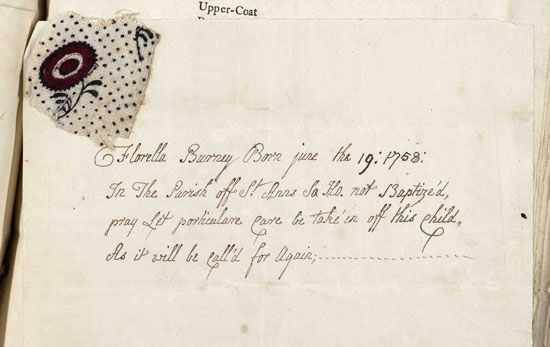 Upper-Coat
Florella Burney Born june the 19: 1758:
In The Parish off St. Anns So.Ho. not Baptize'd,
pray Let porticulare Care be take'en off this Child,
As it will be call'd for Again;